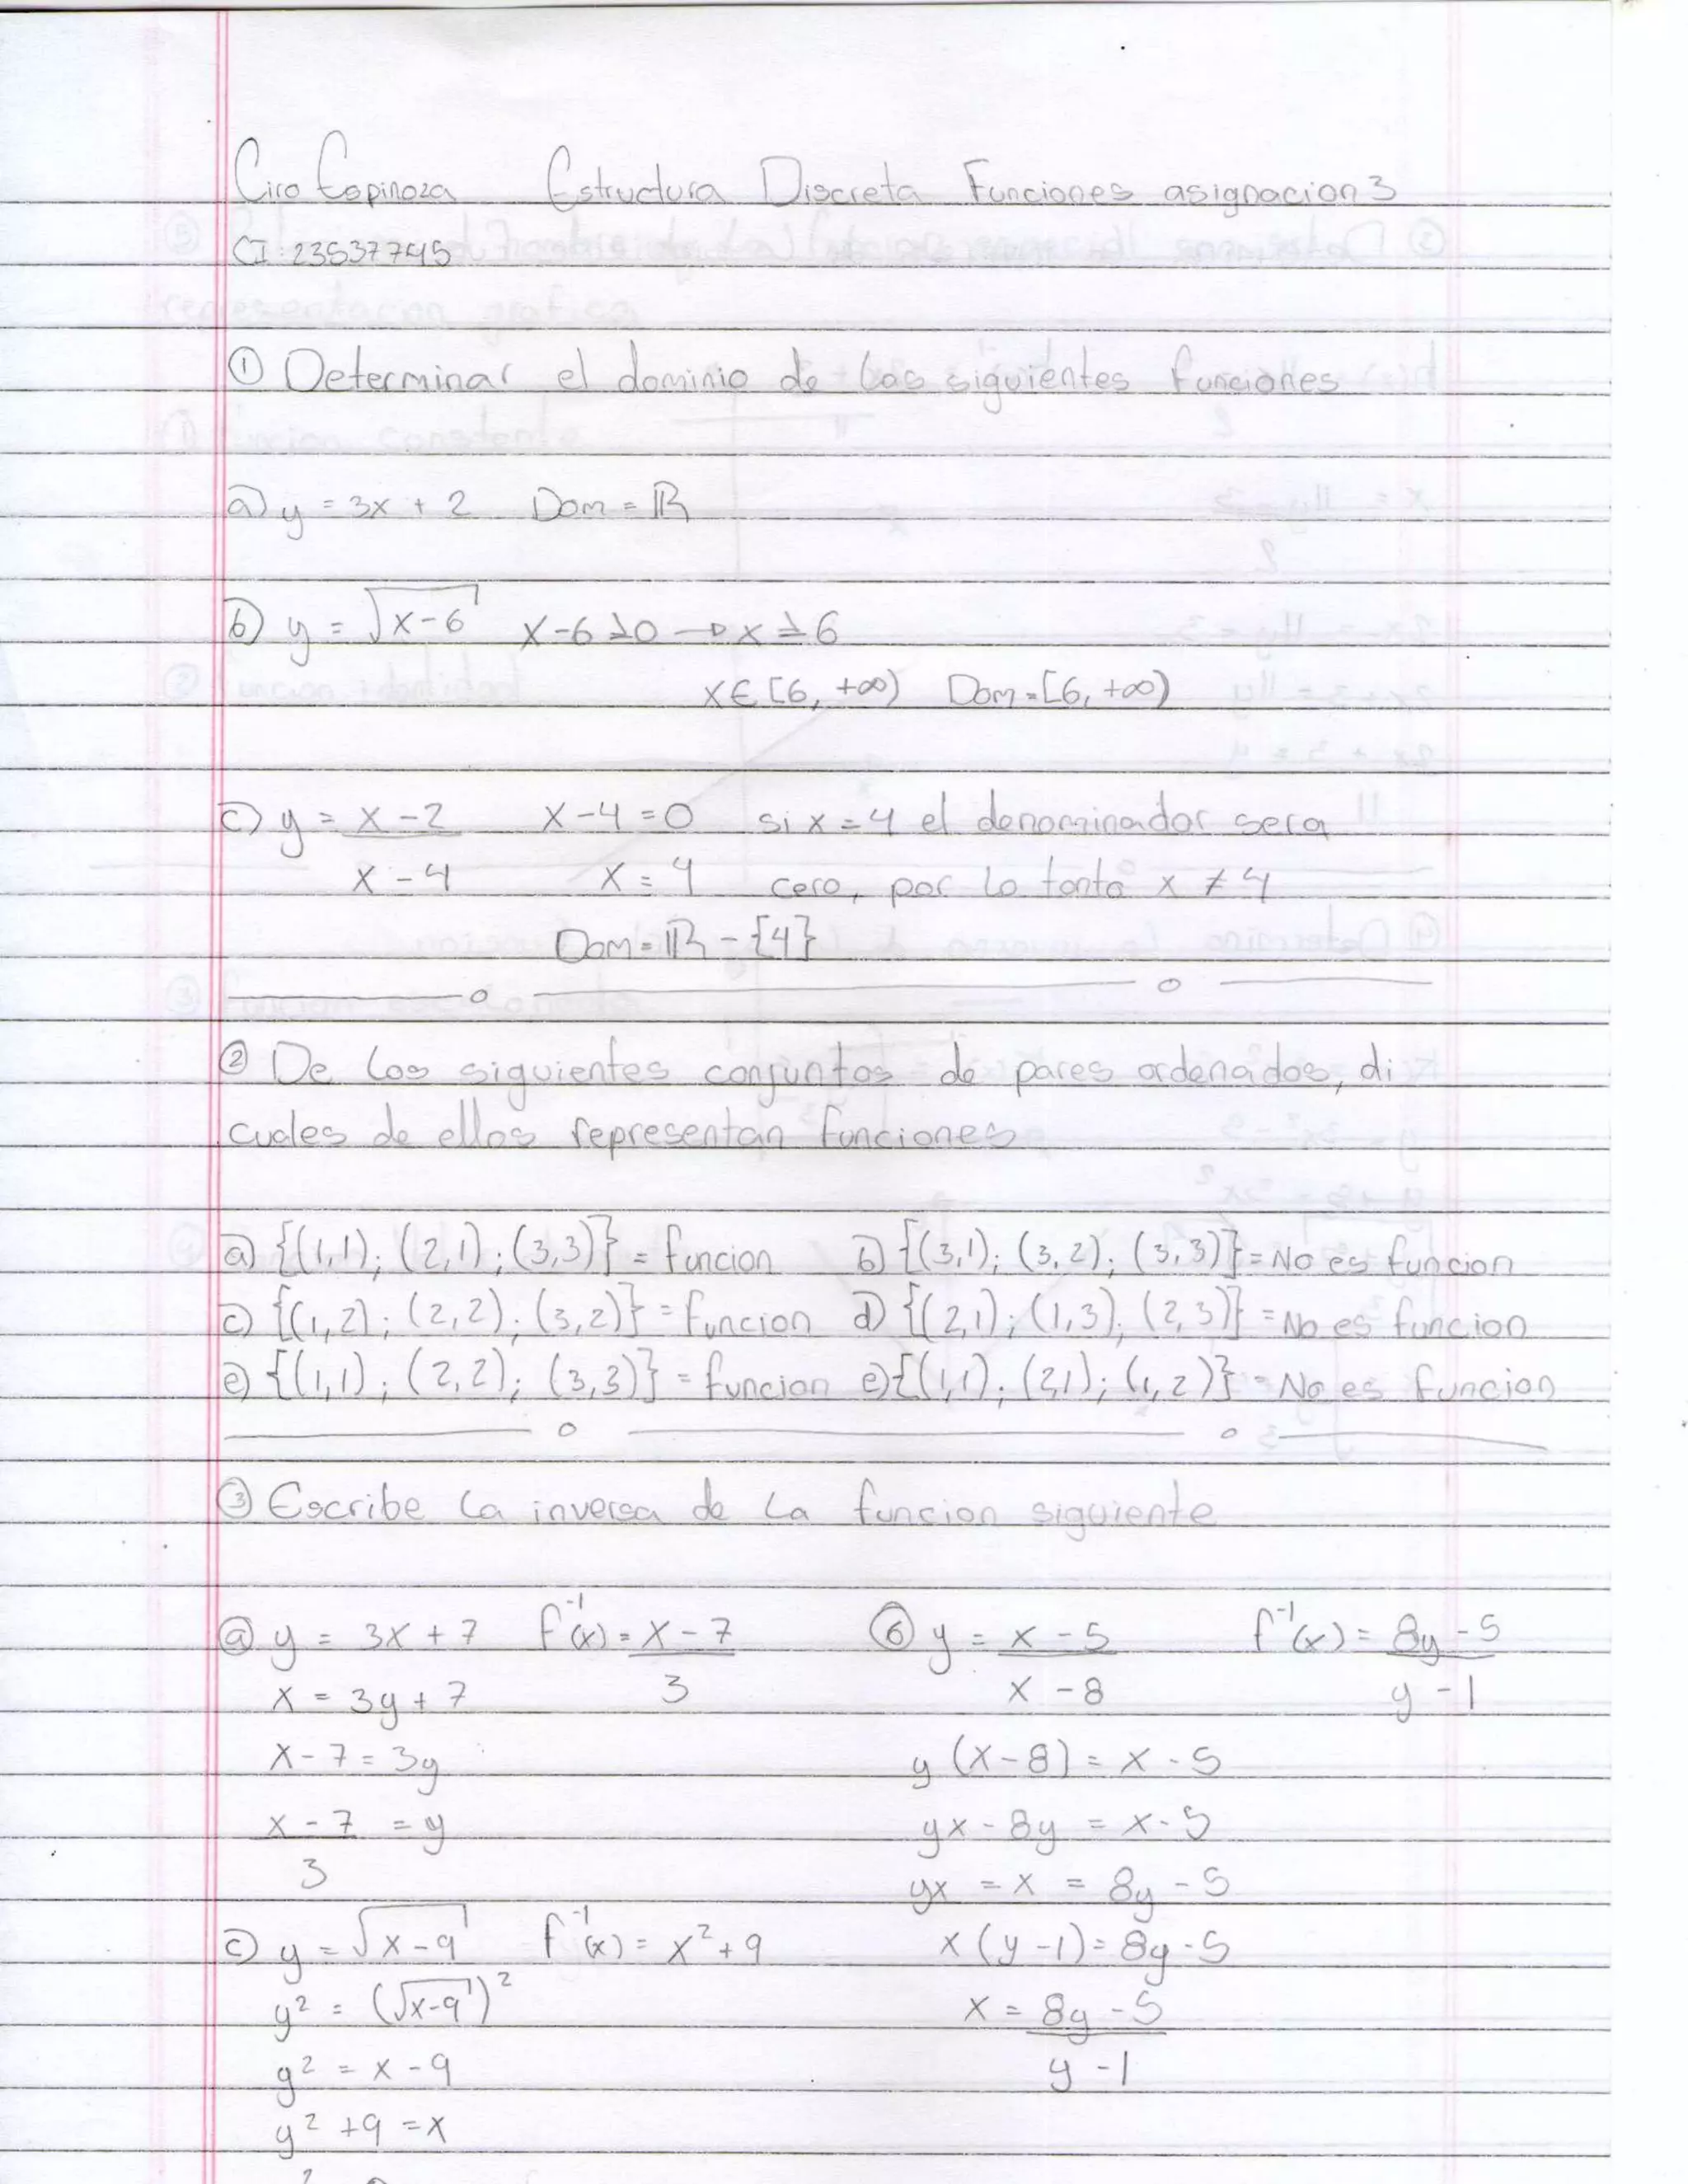 Ciro Espinoza Estructura Discreta Funciones asignacion 3
CI: 23537745
① Determinar el dominio de las siguientes funciones
a) y = 3x + 2 Dom = ℝ
b) y = √x-6 x-6≥0 → x ≥ 6
x∈[6, +∞) Dom=[6, +∞)
c) y = x-2 / x-4 x-4=0 si x=4 el denominador sera
x=4 cero, por lo tanto x ≠ 4
Dom=ℝ-{4}
② De los siguientes conjuntos de pares ordenados, di
cuales de ellos representan funciones
a) {(1,1); (2,1); (3,3)} = funcion b) {(3,1); (3,2); (3,3)} = No es funcion
c) {(1,2); (2,2); (3,2)} = funcion d) {(2,1); (1,3); (2,3)} = No es funcion
e) {(1,1); (2,2); (3,3)} = funcion e) {(1,1); (2,1); (1,2)} = No es funcion
③ Escribe la inversa de la funcion siguiente
a) y = 3x+7 f⁻¹(x) = x-7 / 3
x = 3y+7
x-7 = 3y
x-7 / 3 = y
b) y = x-5 / x-8 f⁻¹(x) = 8y-5 / y-1
y(x-8) = x-5
yx-8y = x-5
yx = x = 8y-5
x(y-1) = 8y-5
x = 8y-5 / y-1
c) y = √x-9 f⁻¹(x) = x²+9
y² = (√x-9)²
y² = x-9
y²+9 = x